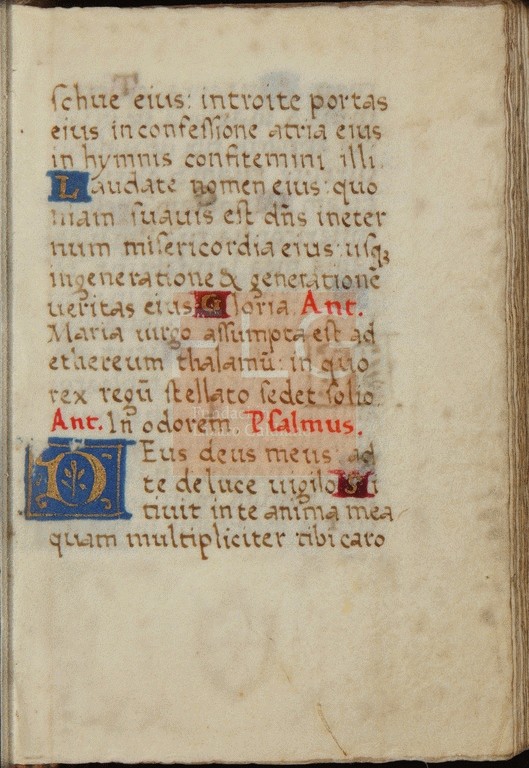 schue eius: introite portas
eius in confessione atria eius
in hymnis confitemini illi.
Laudate nomen eius: quo
niam suauis est dñs in eter
num misericordia eius: usq3
in generatione & generationē
ueritas eius. Gloria. Ant.
Maria uirgo assumpta est ad
ethereum thalamū: in quo
rex regū stellato sedet solio.
Ant. In odorem. Psalmus.
Deus deus meus: ad
te de luce uigilo. Si
tiuit in te anima mea
quam multipliciter tibi caro
FLG
Fundación
Lázaro Galdiano